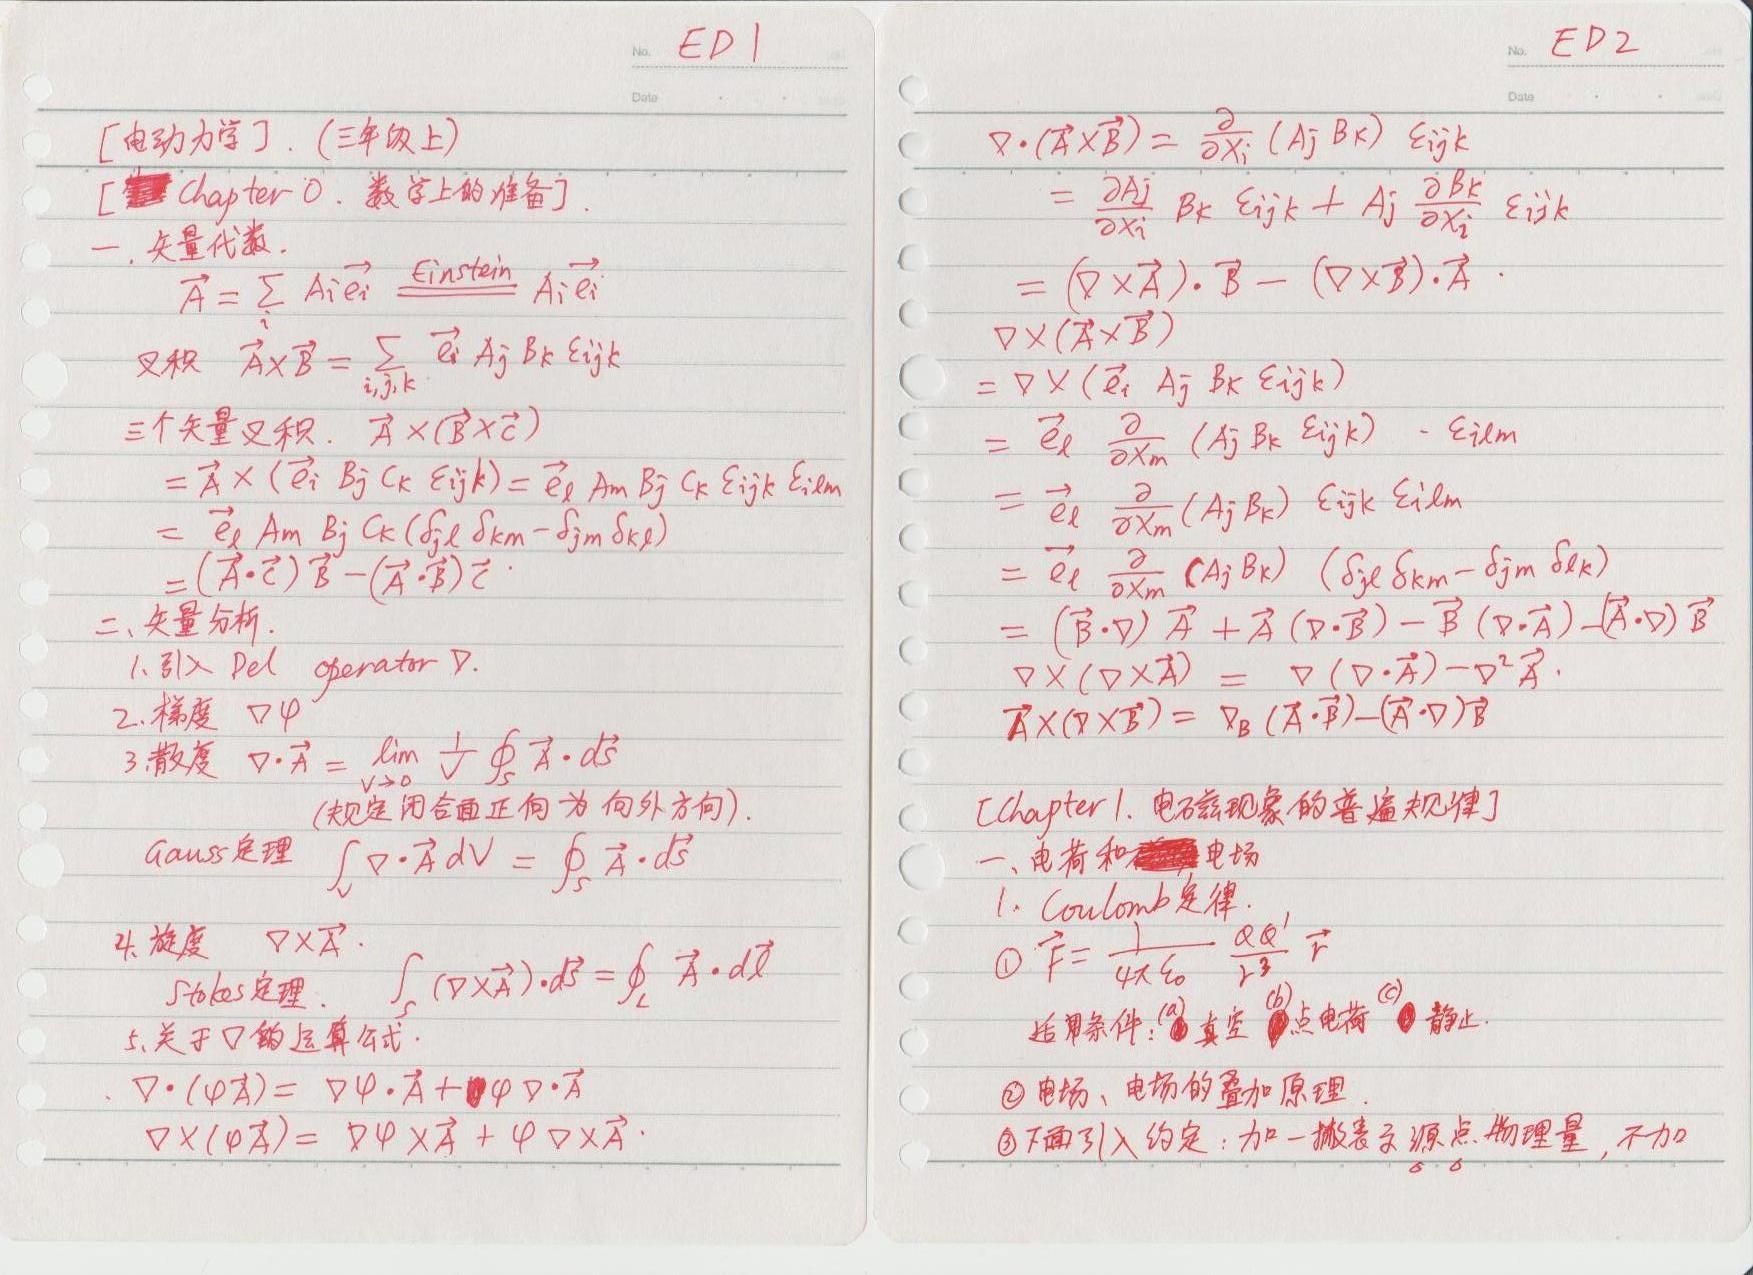 No. ED 1
Date
[电动力学]. (三年级上)
[Chapter 0. 数学上的准备].
一. 矢量代数.
A⃗ = Σ_i A_i e⃗_i ==Einstein== A_i e⃗_i
叉积 A⃗×B⃗ = Σ_{i,j,k} e⃗_i A_j B_k ε_ijk
三个矢量叉积. A⃗×(B⃗×C⃗)
= A⃗×(e⃗_i B_j C_k ε_ijk) = e⃗_l A_m B_j C_k ε_ijk ε_ilm
= e⃗_l A_m B_j C_k (δ_jl δ_km − δ_jm δ_kl)
= (A⃗·C⃗)B⃗ − (A⃗·B⃗)C⃗.
二、矢量分析.
1. 引入 Del operator ∇.
2. 梯度 ∇φ
3. 散度 ∇·A⃗ = lim_{V→0} 1/V ∮_S A⃗·dS⃗
(规定闭合面正向为向外方向).
Gauss定理 ∫_V ∇·A⃗ dV = ∮_S A⃗·dS⃗
4. 旋度 ∇×A⃗.
Stokes定理. ∫_S (∇×A⃗)·dS⃗ = ∮_L A⃗·dl⃗
5. 关于∇的运算公式.
∇·(φA⃗) = ∇φ·A⃗ + φ∇·A⃗
∇×(φA⃗) = ∇φ×A⃗ + φ∇×A⃗.
No. ED 2
Date
∇·(A⃗×B⃗) = ∂/∂x_i (A_j B_k) ε_ijk
= ∂A_j/∂x_i B_k ε_ijk + A_j ∂B_k/∂x_i ε_ijk
= (∇×A⃗)·B⃗ − (∇×B⃗)·A⃗.
∇×(A⃗×B⃗)
= ∇×(e⃗_i A_j B_k ε_ijk)
= e⃗_l ∂/∂x_m (A_j B_k ε_ijk) · ε_ilm
= e⃗_l ∂/∂x_m (A_j B_k) ε_ijk ε_ilm
= e⃗_l ∂/∂x_m (A_j B_k) (δ_jl δ_km − δ_jm δ_lk)
= (B⃗·∇)A⃗ + A⃗(∇·B⃗) − B⃗(∇·A⃗) − (A⃗·∇)B⃗
∇×(∇×A⃗) = ∇(∇·A⃗) − ∇²A⃗.
A⃗×(∇×B⃗) = ∇_B(A⃗·B⃗) − (A⃗·∇)B⃗
[Chapter 1. 电磁现象的普遍规律]
一、电荷和电场
1. Coulomb定律.
① F⃗ = 1/(4πε₀) QQ'/r³ r⃗
适用条件: (a) 真空 (b) 点电荷 (c) 静止.
② 电场、电场的叠加原理.
③ 下面引入约定: 加一撇表示源点物理量, 不加